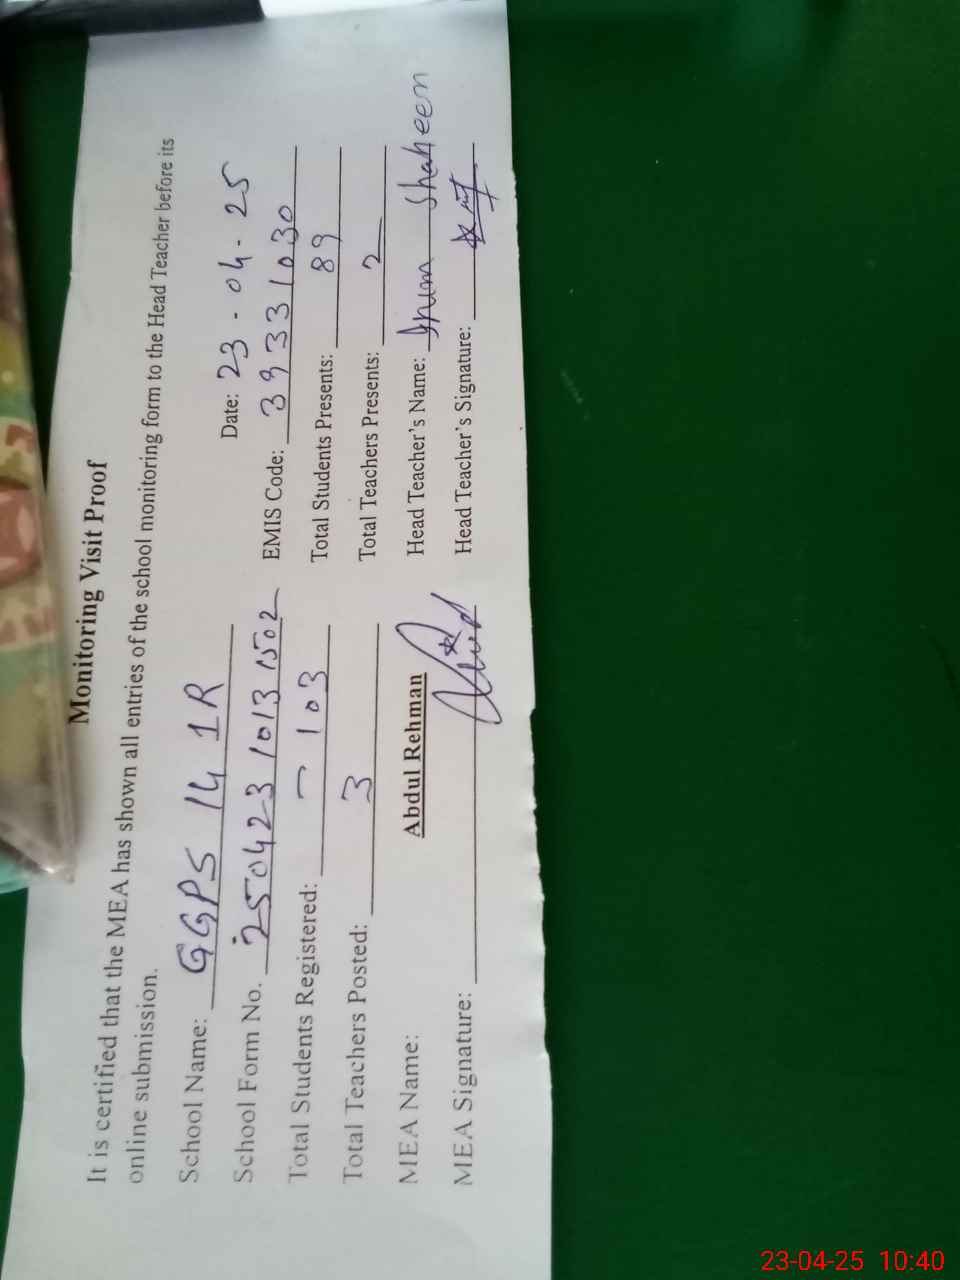 Monitoring Visit Proof
It is certified that the MEA has shown all entries of the school monitoring form to the Head Teacher before its
online submission.
School Name: GGPS 14 1R Date: 23-04-25
School Form No. 250423 1013 1502 EMIS Code: 39331030
Total Students Registered: – 103 Total Students Presents: 89
Total Teachers Posted: 3 Total Teachers Presents: 2
MEA Name: Abdul Rehman Head Teacher's Name: Anum Shaheen
MEA Signature: Head Teacher's Signature:
23-04-25 10:40